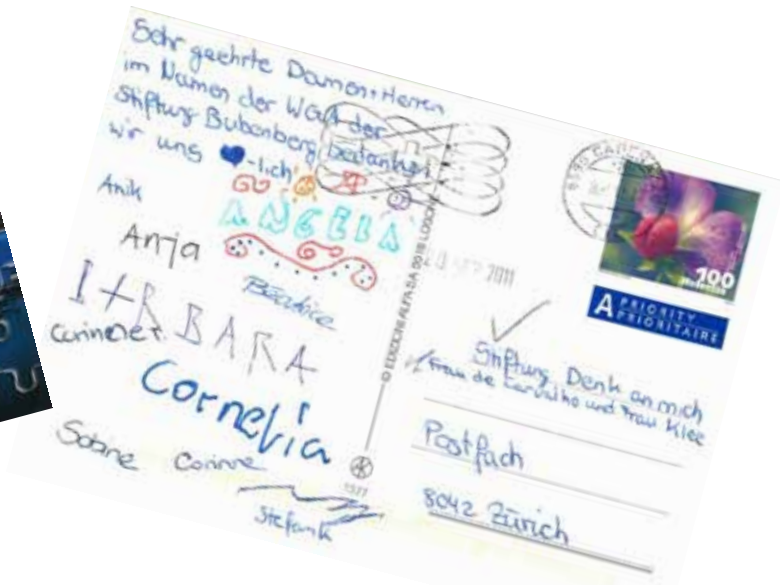 Sehr geehrte Damen+Herren
im Namen der WG4 der
Stiftung Bubenberg bedanken
wir uns ♥-lich
Anik
ANGELA
Anja
Béatrice
BARBARA
Cornelia
Sabine Corinne
© EDIZIONI ALFA SA 6616 LOSONE
1577
SEP 2011
100
Helvetia
A PRIORITY
PRIORITAIRE
Stiftung Denk an mich
Frau de Carvalho und Frau Klee
Postfach
8042 Zürich